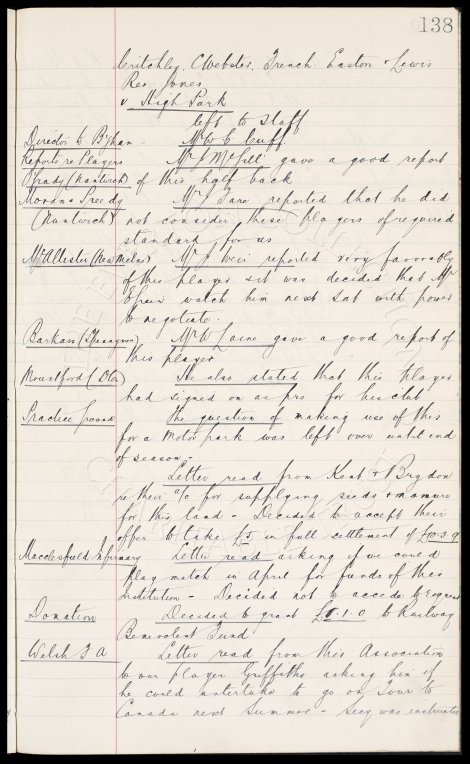 138
Critchley, C Webster. French. Easton & Lewis
Res Jones
v High Park
left to staff
Director to B'ham - Mr W C Cuff
Reports re Players Mr J McGill gave a good report
Brady (Nantwich) of this half back
Moran & Preedy Mr J Fare reported that he did
(Nantwich) not consider these players of required
standard for us
McAllister (New Milns) Mr J Weir reported very favorably
of this player & it was decided that Mr
watch him next Sat with power
to negotiate.
Barkass ( Mr W Laine gave a good report of
this player
Mountford ( He also stated that this player
had signed on as pro for his club
Practice ground The question of making use of this
for a motor park was left over until end
of season -
Letter read from Kent & Brydon
re their a/c for supplying seeds & manure
for this land - Decided to accept their
offer to take £5 in full settlement of
Macclesfield Infirmary Letter read asking if we could
play match in April for funds of this
Institution - Decided not to accede to request
Donation Decided to grant £1.1.0 to Railway
Benevolent Fund
Welsh F A Letter read from this Association
to our player Griffiths asking him if
he could undertake to go on Tour to
Canada next Summer - Secy was instructed